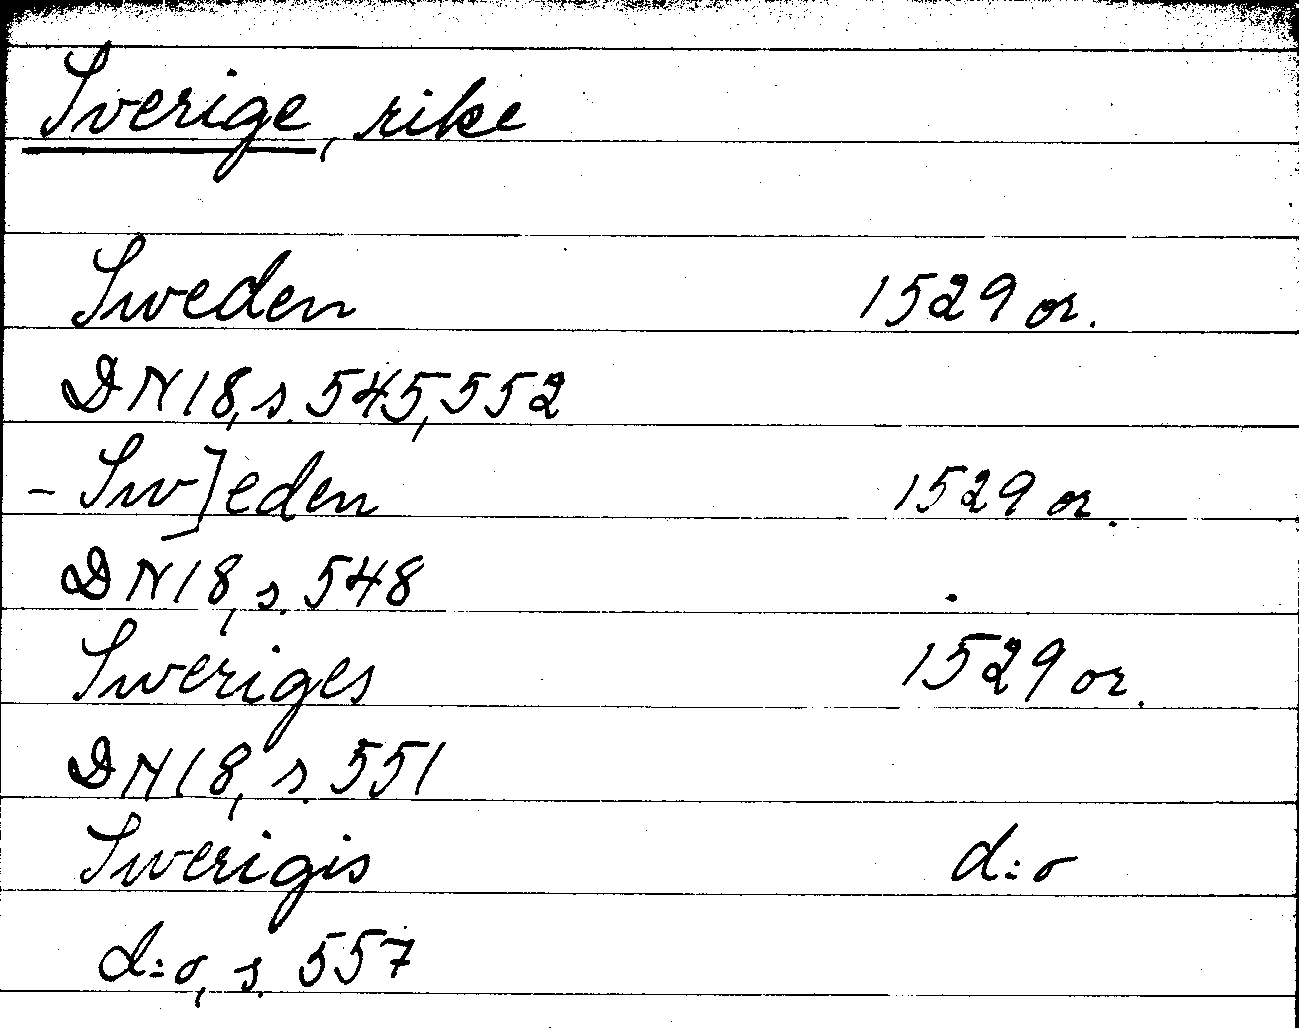 Sverige, rike
Sweden 1529 or.
DN 18, s. 545, 552
- Sw]eden 1529 or.
DN 18, s. 548
Sweriges 1529 or.
DN 18, s. 551
Swerigis d:o
d:o, s. 557